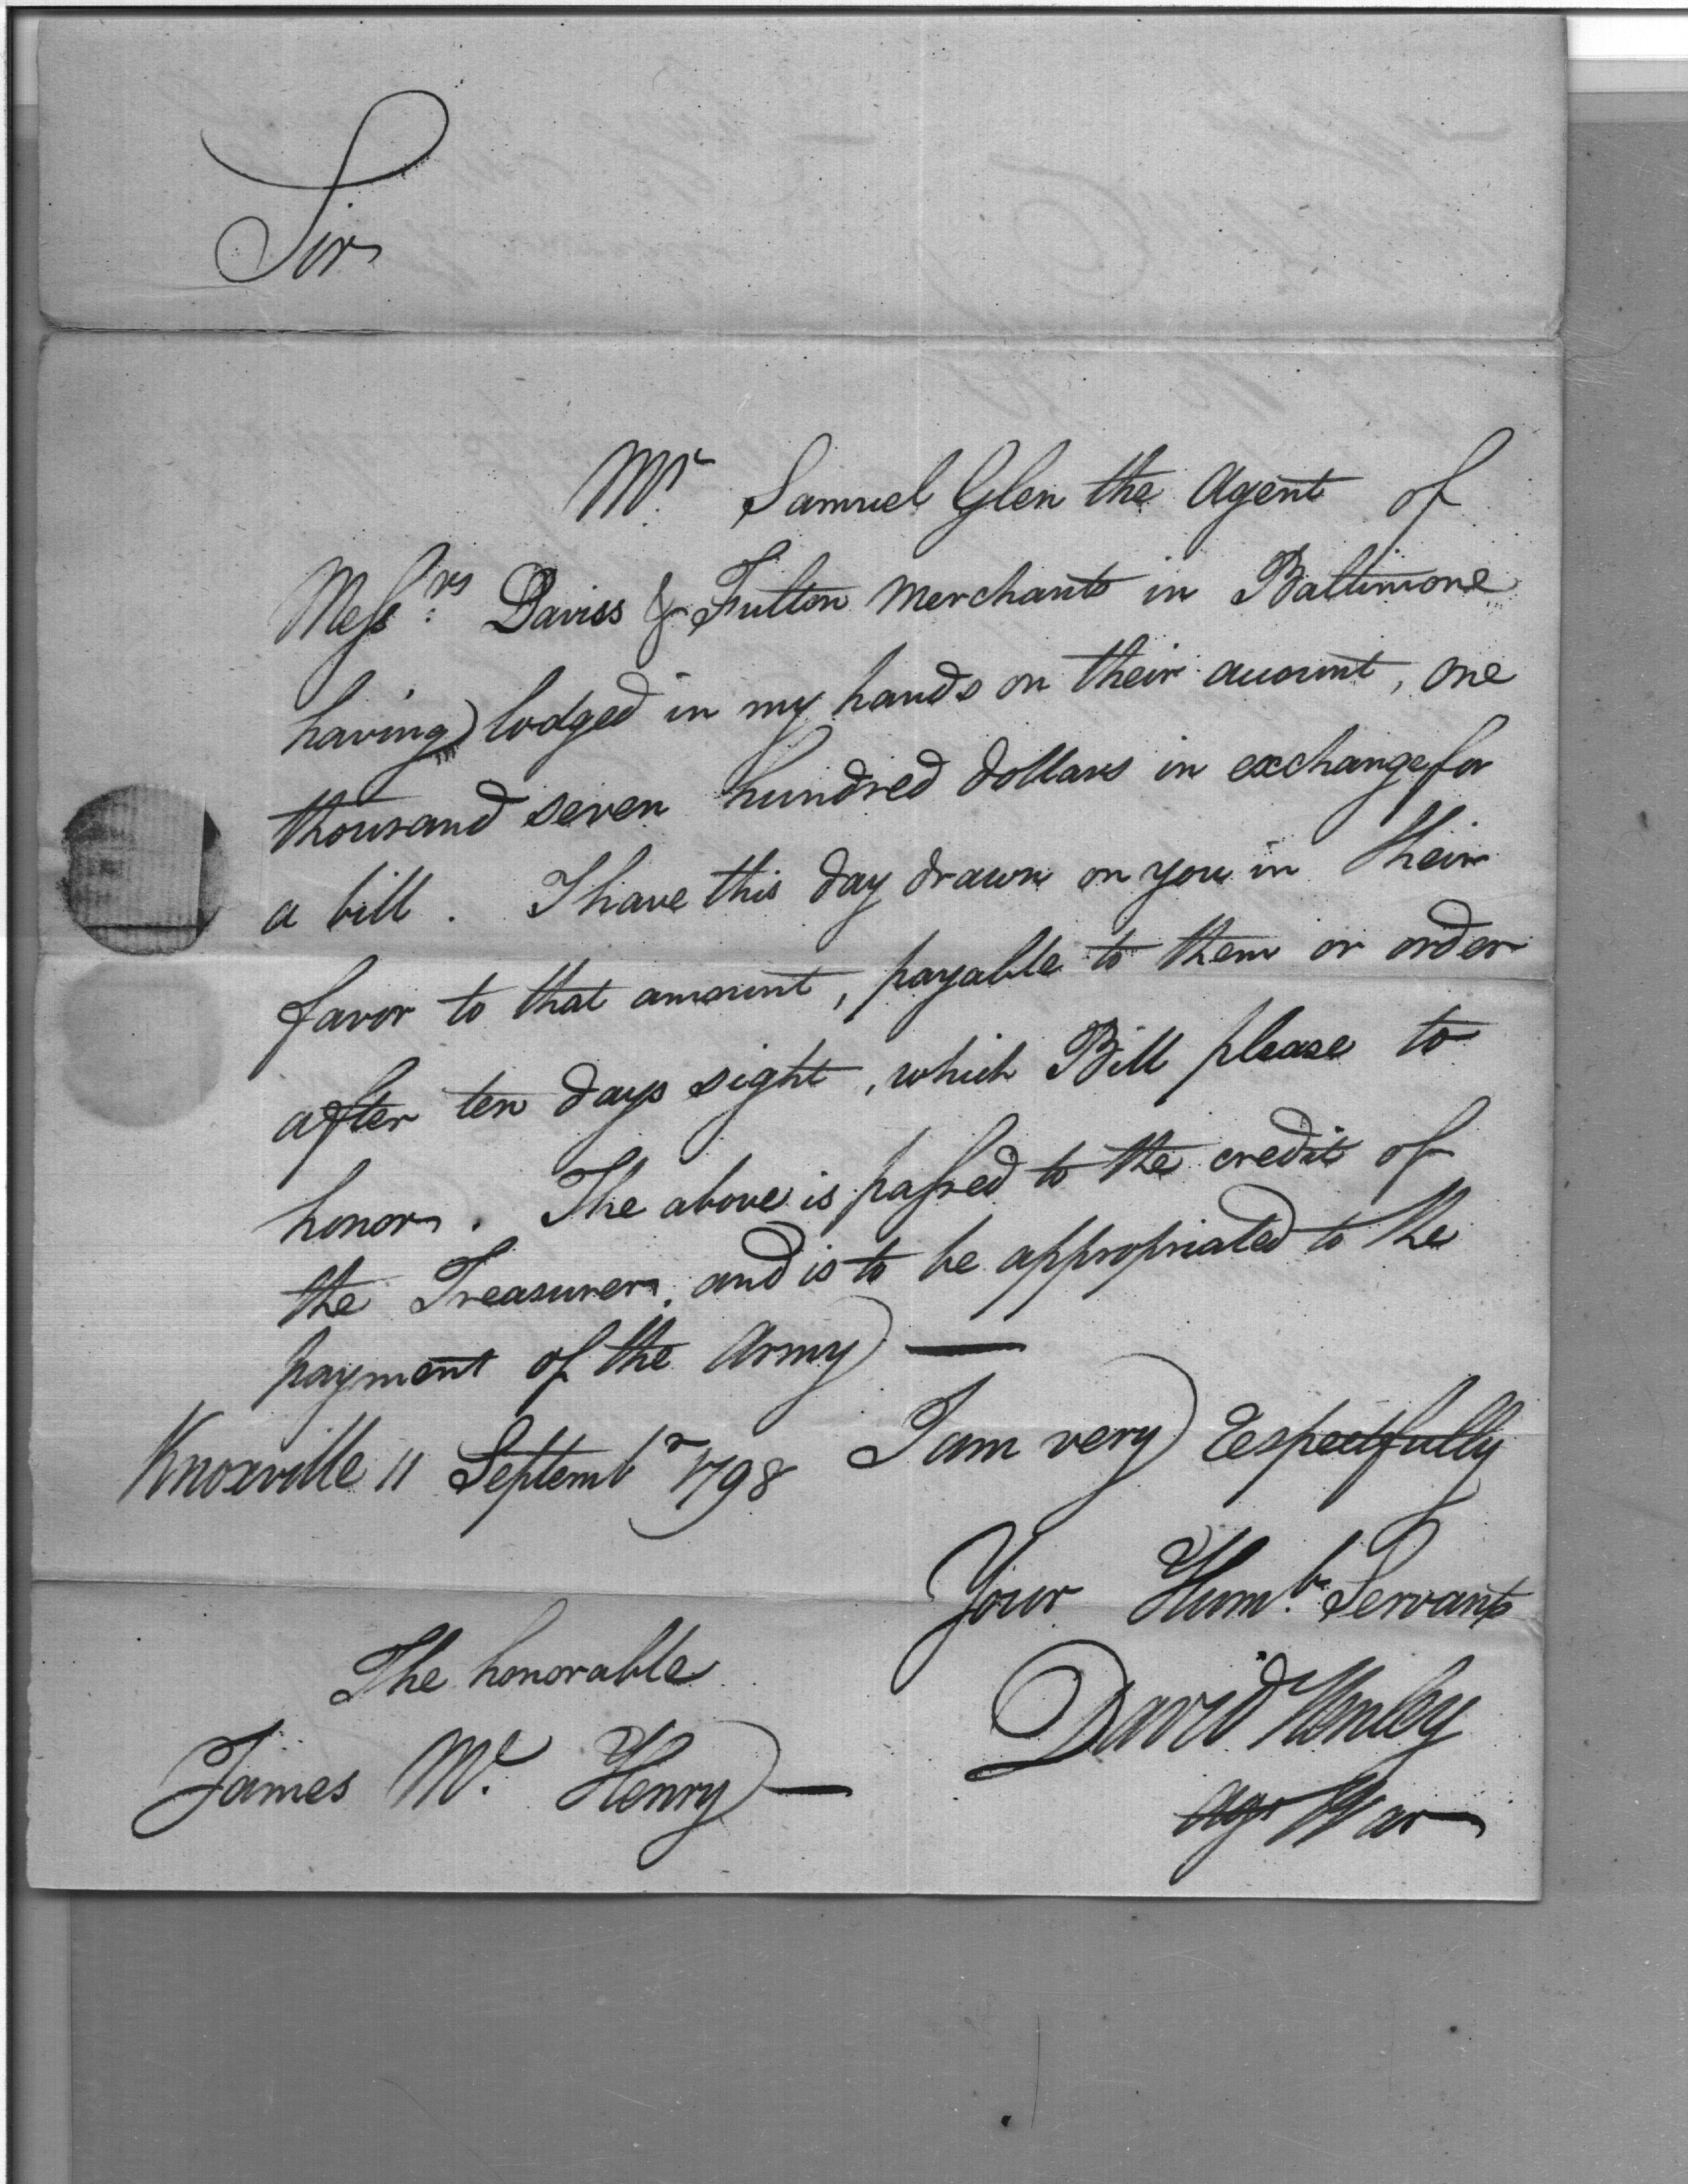 Sir
Mr. Samuel Glen the Agent of
Messrs. Daviss & Fulton Merchants in Baltimore
having lodged in my hands on their account, one
thousand seven hundred dollars in exchange for
a bill. I have this day drawn on you in their
favor to that amount, payable to them or order
after ten days sight, which Bill please to
honor. The above is passed to the credit of
the Treasurer, and is to be appropriated to the
payment of the Army —
Knoxville 11 Septembr 1798 I am very respectfully
Your Humb. Servant
The honorable
David Henley
James Mc. Henry —
agt War